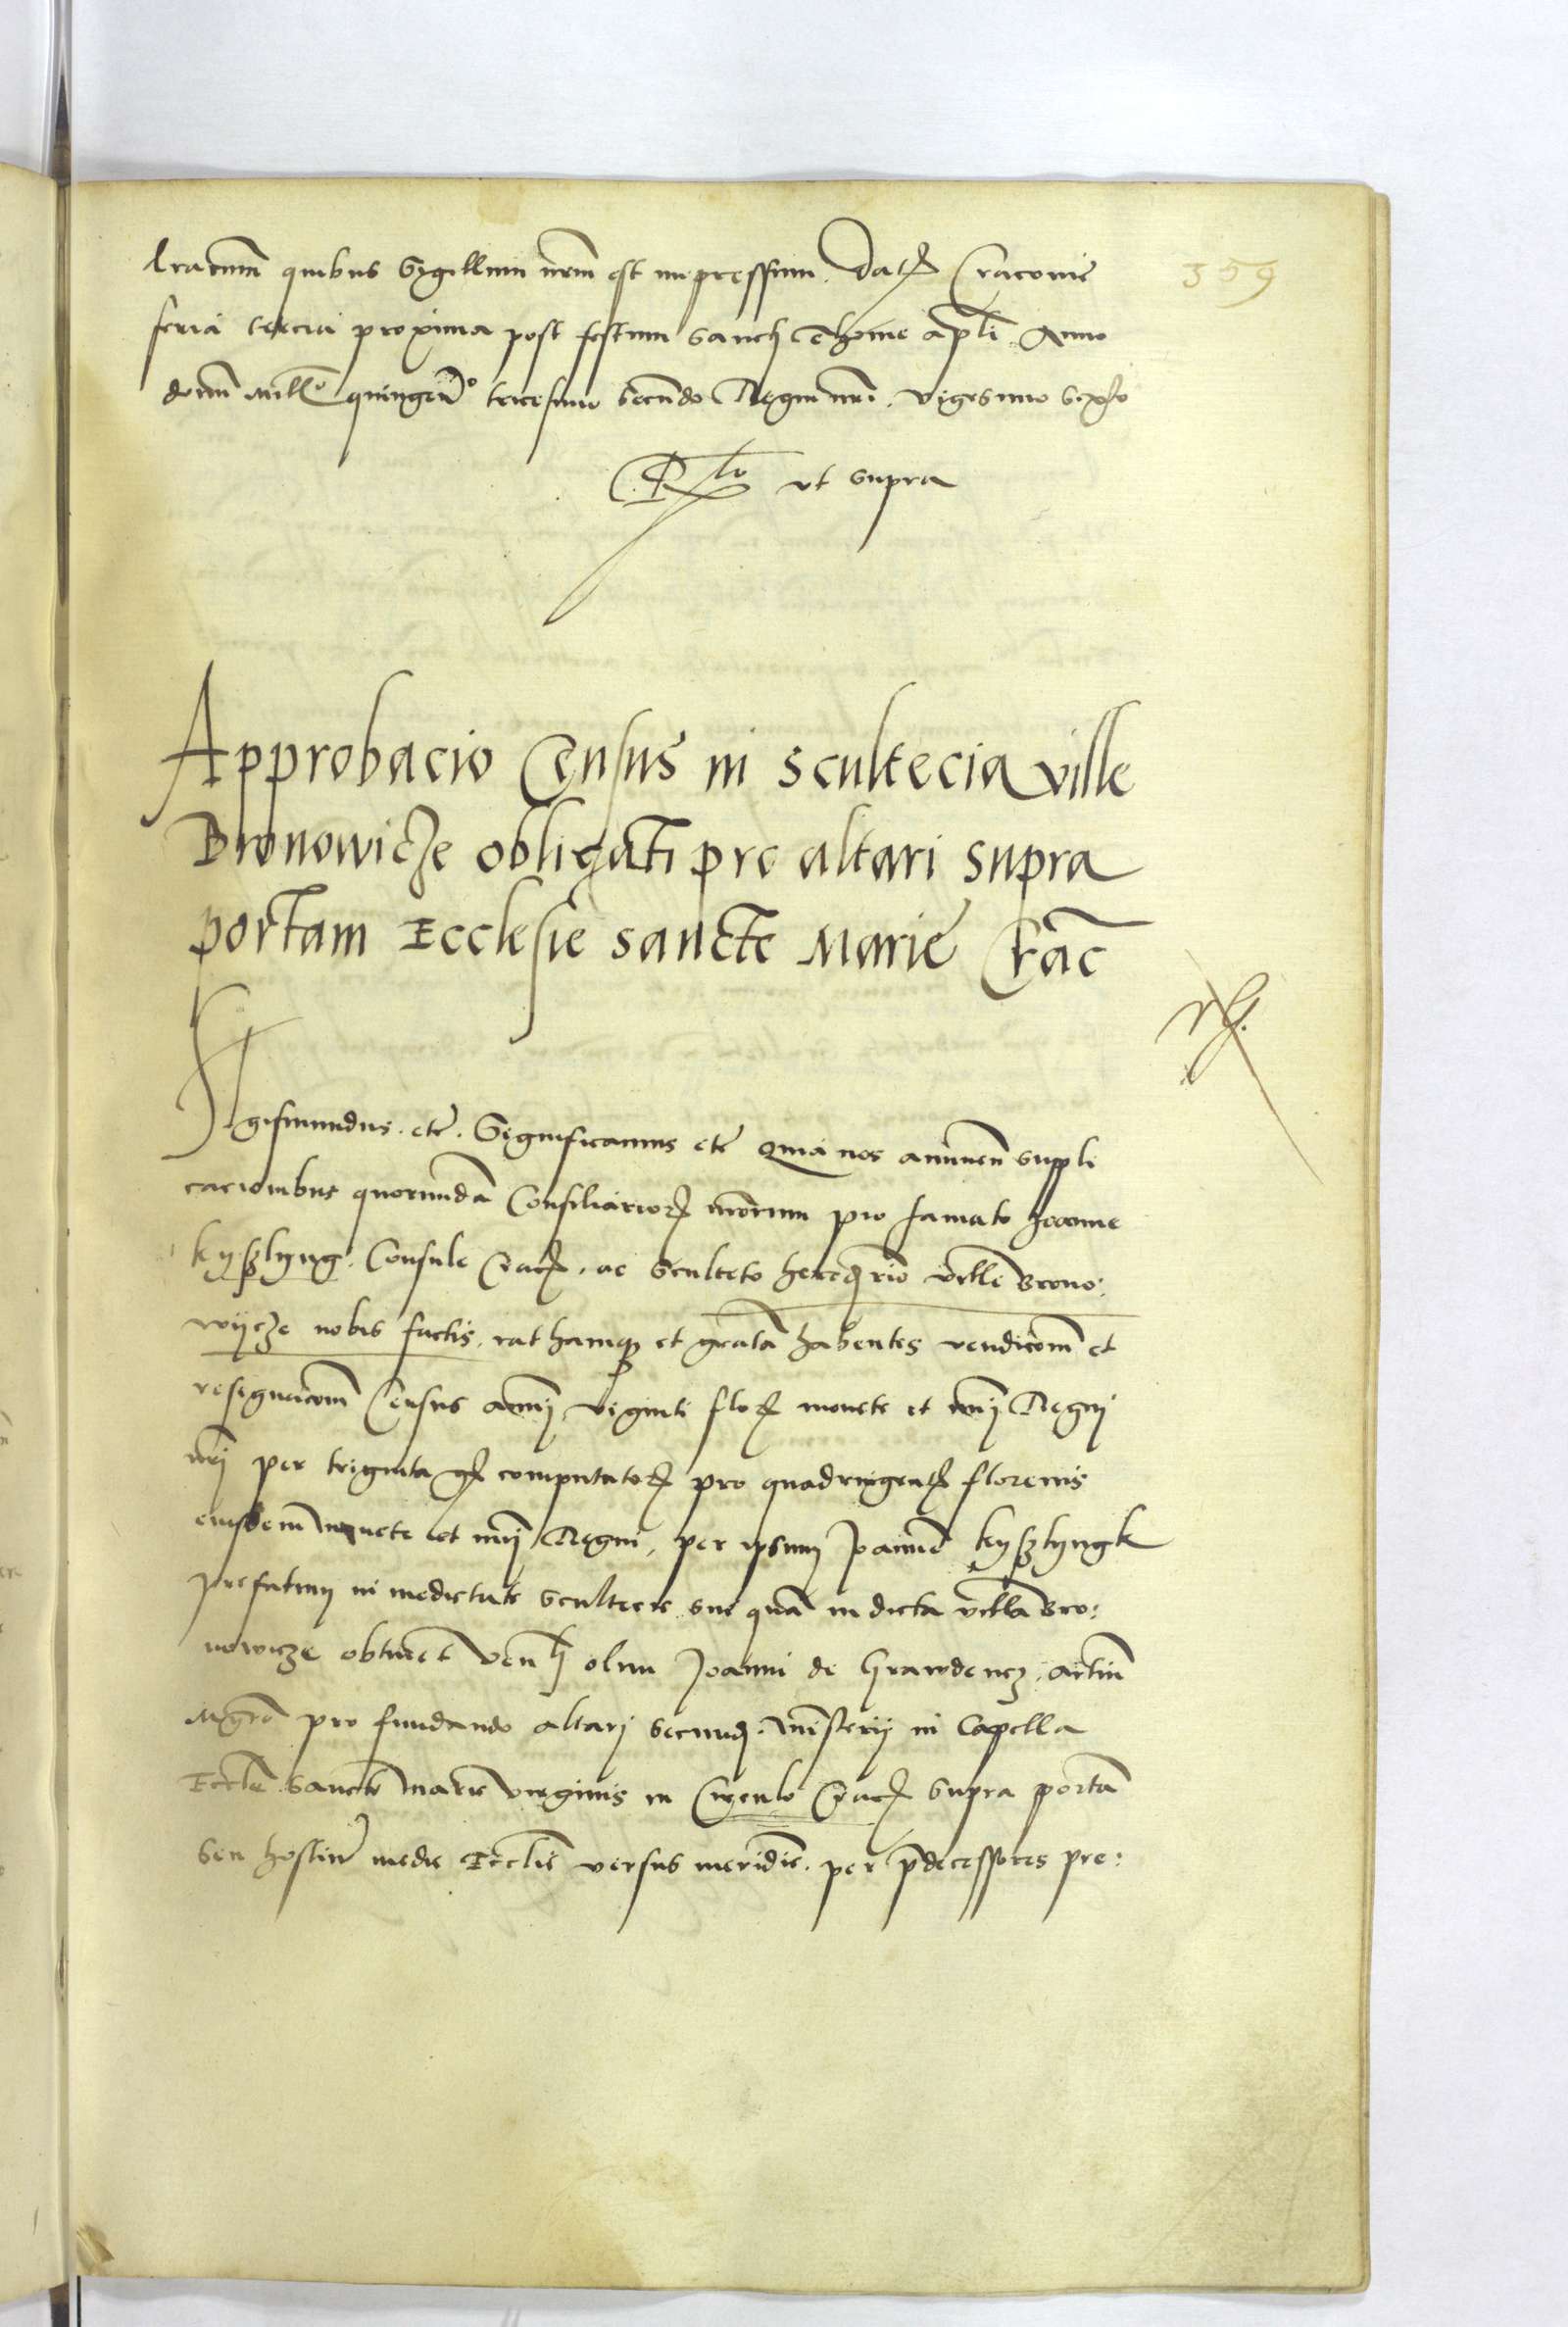 lrarum quibus Sygillum nrm est impressum. Dat Cracovie
feria tercia proxima post festum sancti Thome apli Anno
domi Millo quingeno tricesimo secundo Regni nri. vigesimo sexto
Rlo ut supra
359
Approbacio Census in scultecia ville
Bronowicze obligati pro altari supra
portam Ecclesie sancte Marie Crac
Sigismundus. etc. Significamus etc Quia nos annuen suppli
cacionibus quorunda Consiliarior nrorum pro famato Joanne
kyszlyng. Consule Crac. ac sculteto heredrio ville Brono:
wijcze nobis factis, rathamque et grata habentes vendicom et
resignacom Census annuj viginti flor monete et nrij Regnj
nrj per triginta gr computator pro quadringent florenis
eiusdem monete et nrij Regni, per ipsum Joanne kyszlyngk
prefatum in medietate scultecie sue qua in dicta villa Bro:
nowicze obtinet Ven olim Joanni de Grawdencz. artiu
Mgro pro fundando altarj secund. ministerij in Capella
Eccle Sancte Marie virginis in Circulo Crac supra porta
seu hostiu medie Ecclie versus meridie. per pdecessores pre: